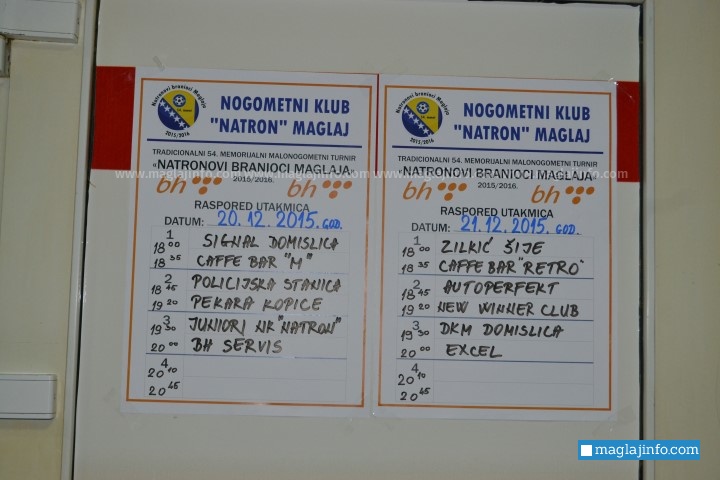 Natronovi branioci Maglaja
2015/2016
NOGOMETNI KLUB
"NATRON" MAGLAJ
TRADICIONALNI 54. MEMORIJALNI MALONOGOMETNI TURNIR
«NATRONOVI BRANIOCI MAGLAJA»
2015/2016.
bh
bh
RASPORED UTAKMICA
DATUM: 20. 12. 2015. GOD.
1
18 00 SIGNAL DOMISLICA
18 35 CAFFE BAR "M"
2
18 45 POLICIJSKA STANICA
19 20 PEKARA KOPICE
3
19 30 JUNIORI NK "NATRON"
20 00 BH SERVIS
4
20 10
20 45
Natronovi branioci Maglaja
2015/2016
NOGOMETNI KLUB
"NATRON" MAGLAJ
TRADICIONALNI 54. MEMORIJALNI MALONOGOMETNI TURNIR
«NATRONOVI BRANIOCI MAGLAJA»
2015/2016.
bh
bh
RASPORED UTAKMICA
DATUM: 21. 12. 2015. GOD.
1
18 00 ZILKIĆ ŠIJE
18 35 CAFFE BAR "RETRO"
2
18 45 AUTOPERFEKT
19 20 NEW WINNER CLUB
3
19 30 DKM DOMISLICA
20 00 EXCEL
4
20 10
20 45
www.maglajinfo.com www.maglajinfo.com www.maglajinfo.com
maglajinfo.com